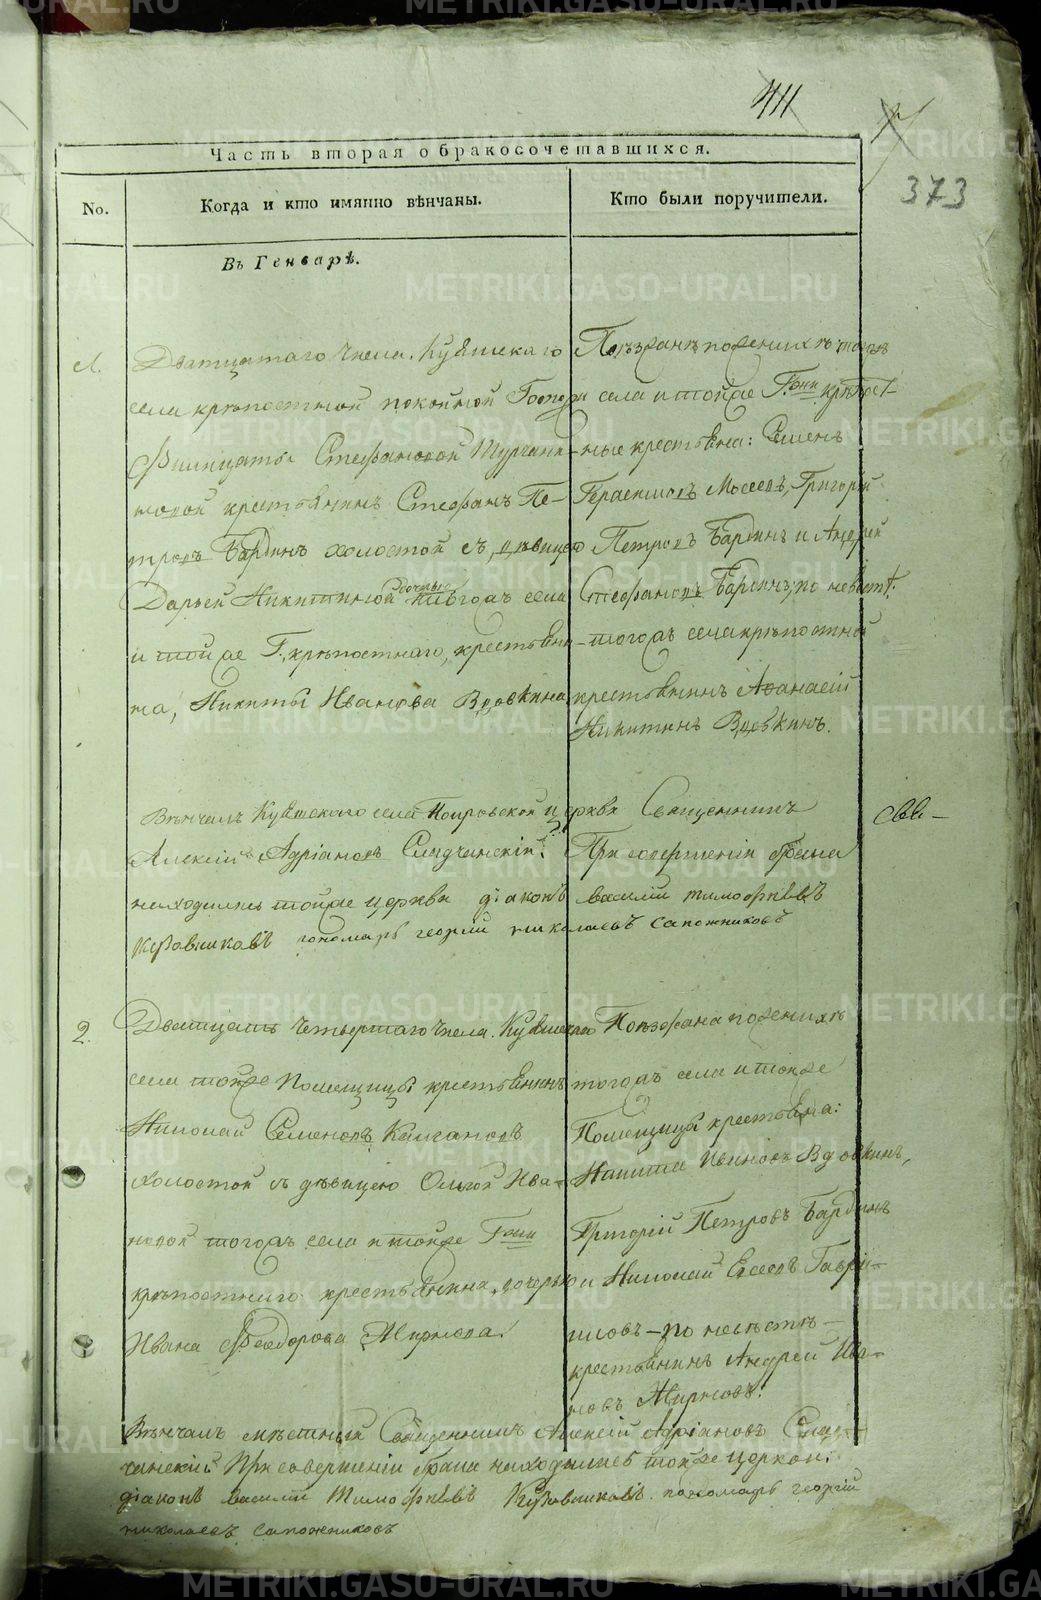 411
373
Часть вторая о бракосочетавшихся.
No.
Когда и кто имянно вѣнчаны.
Кто были поручители.
Въ Генварѣ.
1.
Дватцатаго числа. Куяшскаго
села крѣпостной покойной Госпожи
Филицаты Стефановой Турчани-
новой крестьянинъ Стефанъ Пе-
тровъ Бардинъ холостой съ дѣвицею
Дарьей Никитиной дочерью
села
и той же Г. крѣпостнаго, крестьяни-
на, Никиты Иванова Вдовкина
по женихѣ
села и той же Г-жи крѣпост-
ные крестьяна: Семенъ
Герасимовъ Мосеевъ, Григорій
Петровъ Бардинъ и Андрей
Стефановъ Бардинъ; по невѣстѣ
тогожъ села крѣпостной
крестьянинъ Афанасій
Никитинъ Вдовкинъ.
Вѣнчалъ Куяшскаго села Покровской церкви Священникъ
Алексій Адріановъ Сладчанскій. При совершеніи брака
находились тойже церкви діаконъ василій тимофѣевъ
пономарь георгій николаевъ сапожниковъ
2.
Дватцать четвертаго числа. Куяшскаго
села тойже Помещицы крестьянинъ
Николай Семеновъ Калгановъ
холостой съ дѣвицею Ольгой Ива-
новой тогожъ села и тойже Г-жи
крѣпостнаго крестьянина, дочерью
Ивана Феодорова Жирнова.
по женихѣ
тогожъ села и тойже
Помещицы крестьяна:
Никита Ивановъ Вдовкинъ,
Григорій Петровъ Бардинъ
и Николай Евсеевъ Гаври-
ловъ – по невѣстѣ –
крестьянинъ Андрей Ива-
новъ Жирновъ.
Вѣнчалъ мѣстный Священникъ Алексій Адріановъ Слад-
чанскій. При совершеніи брака находились тойже церкви:
діаконъ василій Тимофѣевъ пономарь георгій
николаевъ сапожниковъ
METRIKI.GASO-URAL.RU